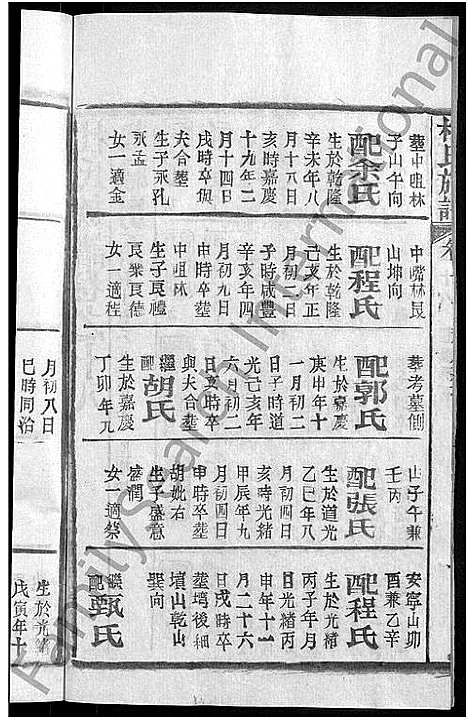 葬中咀林
子山午向
配余氏
生於乾隆
辛未年八
月十八日
亥時嘉慶
十九年二
月十四日
戌時卒與
夫合葬
生子永孔
永孟
女一適金
中嘴林艮
山坤向
配程氏
生於乾隆
己亥年正
月初二日
子時咸豐
辛亥年四
月初九日
申時卒葬
中咀林
生子良禮
良樂良德
女一適桂
葬考墓側
配郭氏
生於嘉慶
庚申年十
一月初二
日子時道
光己亥年
六月初二
日亥時卒
與夫合葬
繼配胡氏
生於嘉慶
丁卯年九
山子午兼
壬丙
配張氏
生於道光
乙巳年八
月初四日
亥時光緒
甲辰年九
月初四日
申時卒葬
胡妣右
生子盛意
盛潤
女一適蔡
安寧山卯
酉兼乙辛
配程氏
生於光緒
丙子年月
日光緒丙
申年十一
月二十六
日戌時卒
葬塆後細
墳山乾山
巽向
繼配甄氏
月初八日
巳時同治
生於光緒
戊寅年十
FamilySearch International